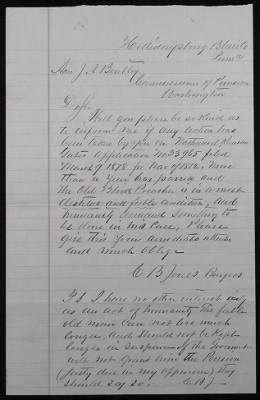 Hollidaysburg Blair Co
Penna
Hon J. A. Bentley
Commissioner of Pensions
Washington
D Sir
Will you please be so kind as
to inform me if any action has
been taken by you in Nathaniel
Application No 33965 filed
March 9 1878. for War of 1812. More
than a Year has passed and
the Old Blind Preacher is in a most
destitute and feeble condition, and
humanity demand something to
be done in his Case, Please
give this your immediate attention
and much oblige
C B Jones Burgess
P.S I have no other interest only
as an act of humanity the feeble
old man can not live much
longer, and should not be kept
longer in suspense if the Government
will not Grant him the Pension
(justly due in my oppinion) they
should say so. C B J